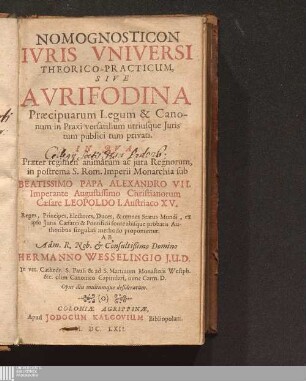 NOMOGNOSTICON
IVRIS VNIVERSI
THEORICO-PRACTICUM,
SIVE
AVRIFODINA
Præcipuarum Legum & Cano-
num in Praxi versantium utriusque Juris
tum publici tum privati.
IN QVA
Præter regimen animarum ac jura Regnorum,
in postrema S. Rom. Imperii Monarchia sub
BEATISSIMO PAPA ALEXANDRO VII.
Imperante Augustissimo Christianorum
Cæsare LEOPOLDO I. Austriaco XV.
Reges, Principes, Electores, Duces, & omnes Status Mundi, ex
ipso Juris Cæsarei & Pontificii fonte aliisque probatis Au-
thoribus singulari methodo proponuntur.
AB
Adm. R. Nob. & Consultissimo Domino
HERMANNO WESSELINGIO J.U.D.
S. Pauli & ad S. Martinum Monasterii Westph.
Canonico Capitulari,
Opus diu multumque desideratum.
COLONIÆ AGRIPPINÆ,
Apud JODOCUM KALCOVIUM Bibliopolam.
DC. LXII.